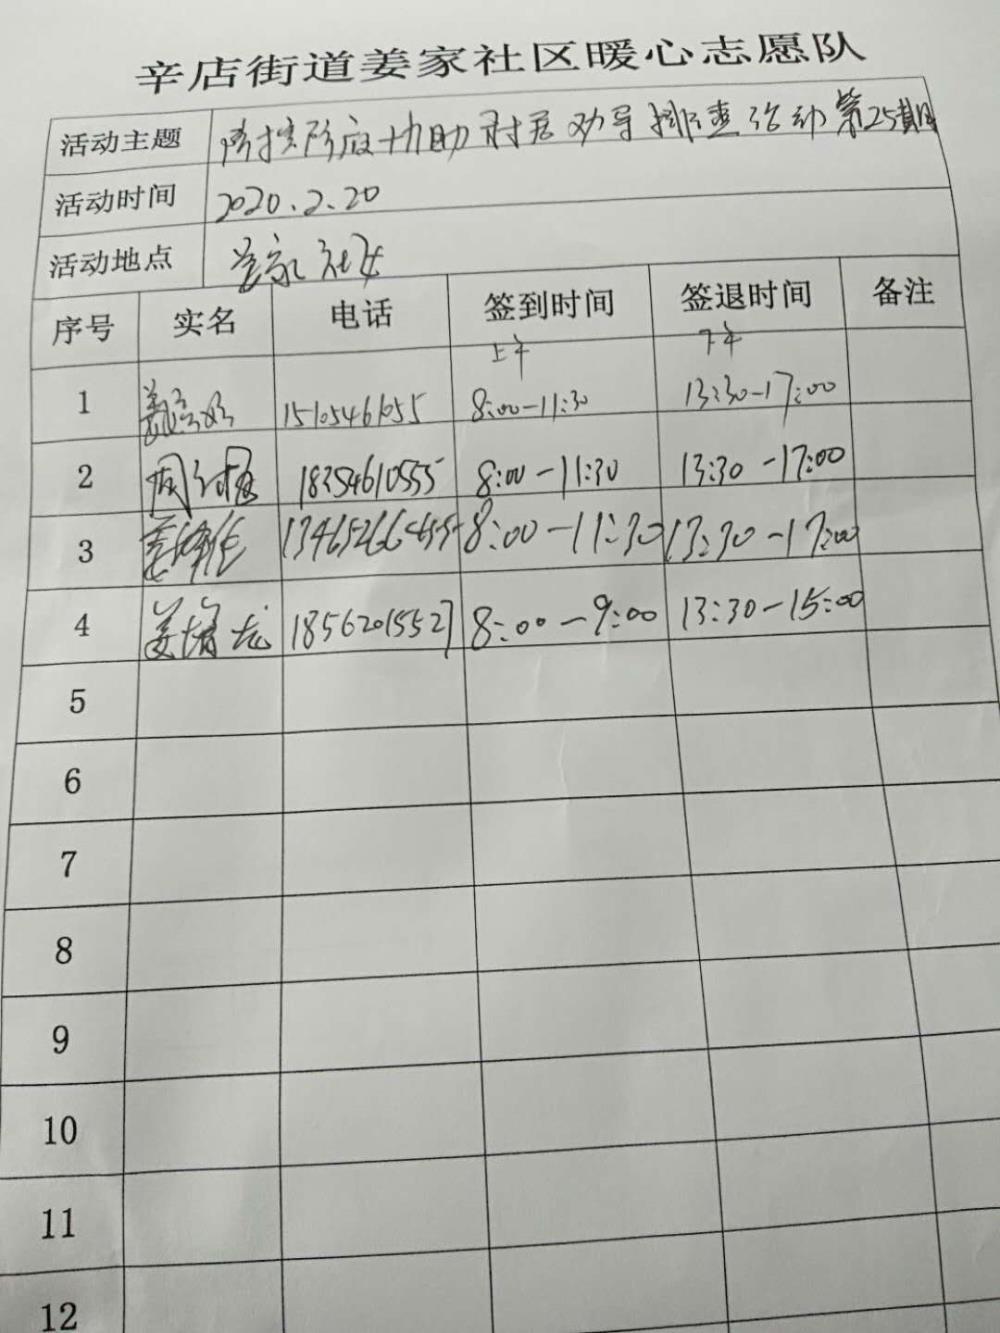 辛店街道姜家社区暖心志愿队
活动主题 防控 协助村居劝导排查活动第25期
活动时间 2020.2.20
活动地点 姜家社区
序号 实名 电话 签到时间 签退时间 备注
上午 下午
1 15105461055 8:00-11:30 13:30-17:00
2 18354610555 8:00-11:30 13:30-17:00
3 8:00-11:30 13:30-17:00
4 18562015527 8:00-9:00 13:30-15:00
5
6
7
8
9
10
11
12